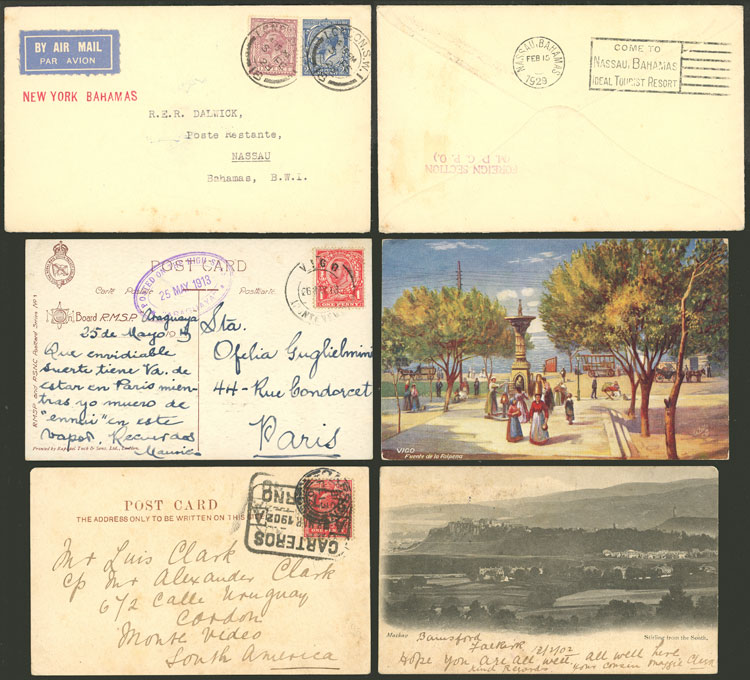 BY AIR MAIL
PAR AVION
NEW YORK BAHAMAS
R.E.R. DALWICK,
Poste Restante,
NASSAU
Bahamas, B.W.I.
NASSAU, BAHAMAS
FEB 15
1929
COME TO
NASSAU, BAHAMAS
IDEAL TOURIST RESORT
FOREIGN SECTION
(M. P. G. P. O.)
POST CARD
Carte Postale
Postkarte
POSTED ON HIGH
25 MAY 1913
VIGO
ONE PENNY
On Board R.M.S.P. Araguaya
25 de Mayo 1913
Que envidiable
suerte tiene Vd. de
estar en Paris mien-
tras yo muero de
"ennui" en este
vapor. Recuerdos
R.M.S.P. and P.S.N.C. Postcard Series No 1
Printed by Raphael Tuck & Sons, Ltd., London.
Sta.
Ofelia Guglielmini
44-Rue Condorcet
Paris
VIGO
Fuente de la Falpena
POST CARD
THE ADDRESS ONLY TO BE WRITTEN ON THIS
CARTEROS
MAR 1902
Mr Luis Clark
c/o Mr Alexander Clark
672 Calle Uruguay
Cordon
Monte Video
South America
Stirling from the South.
Bainsford
Falkirk
12/2/02
Hope you are all well. all well here
kind Regards your cousin Maggie